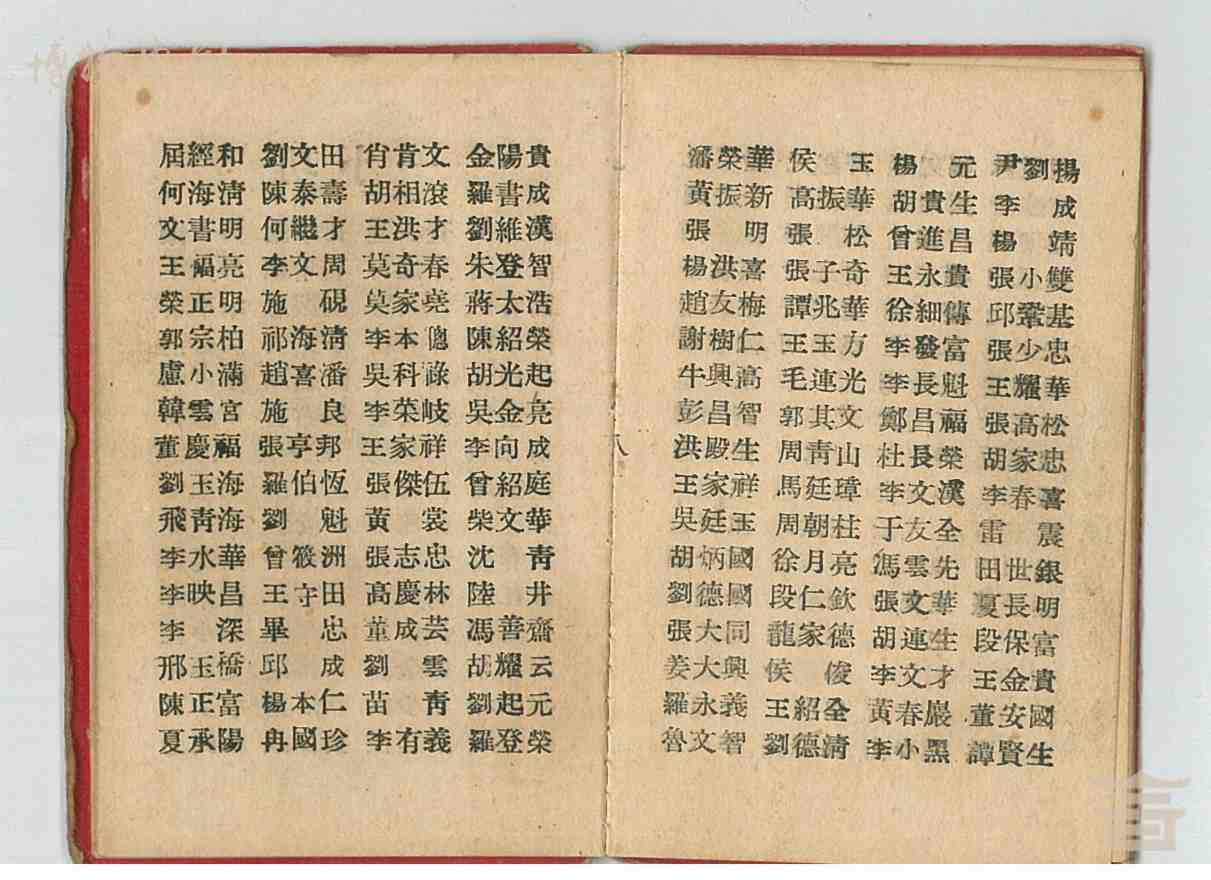 屆經和 劉文田 肖肯文 金陽貴
何海清 陳泰壽 胡相滾 羅書成
文書明 何繼才 王洪才 劉維漢
王福亮 李文周 莫奇春 朱登智
榮正明 施硯 莫家堯 蔣太浩
郭宗柏 祁海清 李本德 陳紹榮
盧小滿 趙喜潘 吳科祿 胡光起
韓雲宮 施良 李荣岐 吳金亮
董慶福 張亨邦 王家祥 李向成
劉玉海 羅伯恆 張傑伍 曾紹庭
飛青海 劉魁 黃裳 柴文華
李水華 曾筱洲 張志忠 沈青
李映昌 王守田 高慶林 陸井
李深 畢忠 董成芸 馮善齋
邢玉橋 邱成 劉雲 胡耀云
陳正富 楊本仁 苗青 劉起元
夏承陽 冉國珍 李有義 羅登榮
八
潘榮華 侯玉 楊元 尹劉揚
黃振新 高振華 胡貴生 李成
張明 張松 曾進昌 楊靖
楊洪喜 張子奇 王永貴 張小雙
趙友梅 譚兆華 徐細傳 邱鞏基
謝樹仁 王玉方 李發富 張少忠
牛興高 毛連光 李長魁 王耀華
彭昌智 郭其文 鄭昌福 張高松
洪殿生 周青山 杜長榮 胡家忠
王家祥 馬廷璋 李文漢 李春喜
吳廷玉 周朝柱 于友全 雷震
胡炳國 徐月亮 馮雲先 田世銀
劉德國 段仁欽 張文華 夏長明
張大同 龍家德 胡連生 段保富
姜大興 侯俊 李文才 王金貴
羅永義 王紹全 黃春嚴 董安國
魯文智 劉德清 李小黑 譚賢生